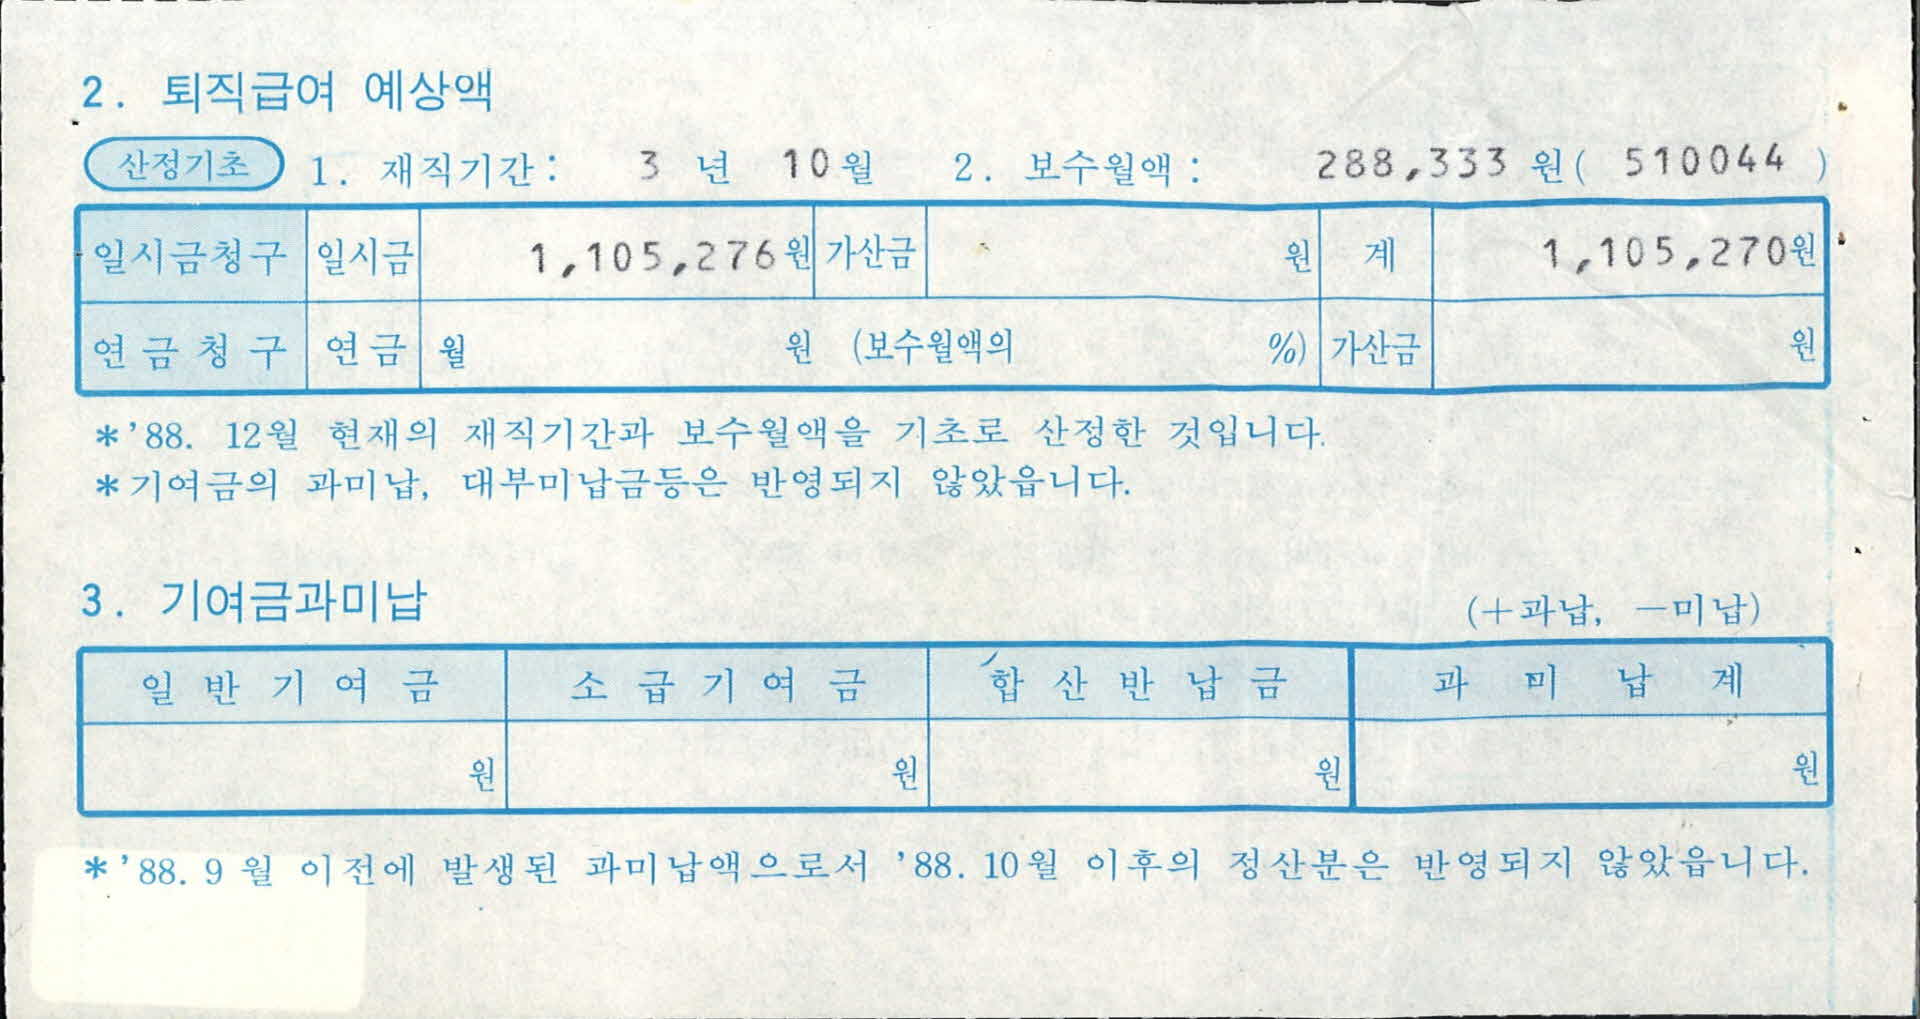 2. 퇴직급여 예상액
산정기초 1. 재직기간: 3 년 10월 2. 보수월액: 288,333 원( 510044 )
일시금청구 일시금 1,105,276원 가산금 원 계 1,105,270원
연금청구 연금 월 원 (보수월액의 %) 가산금 원
*'88. 12월 현재의 재직기간과 보수월액을 기초로 산정한 것입니다.
*기여금의 과미납, 대부미납금등은 반영되지 않았읍니다.
3. 기여금과미납
(+과납, -미납)
일반기여금 소급기여금 합산반납금 과미납계
원 원 원 원
*'88. 9월 이전에 발생된 과미납액으로서 '88. 10월 이후의 정산분은 반영되지 않았읍니다.